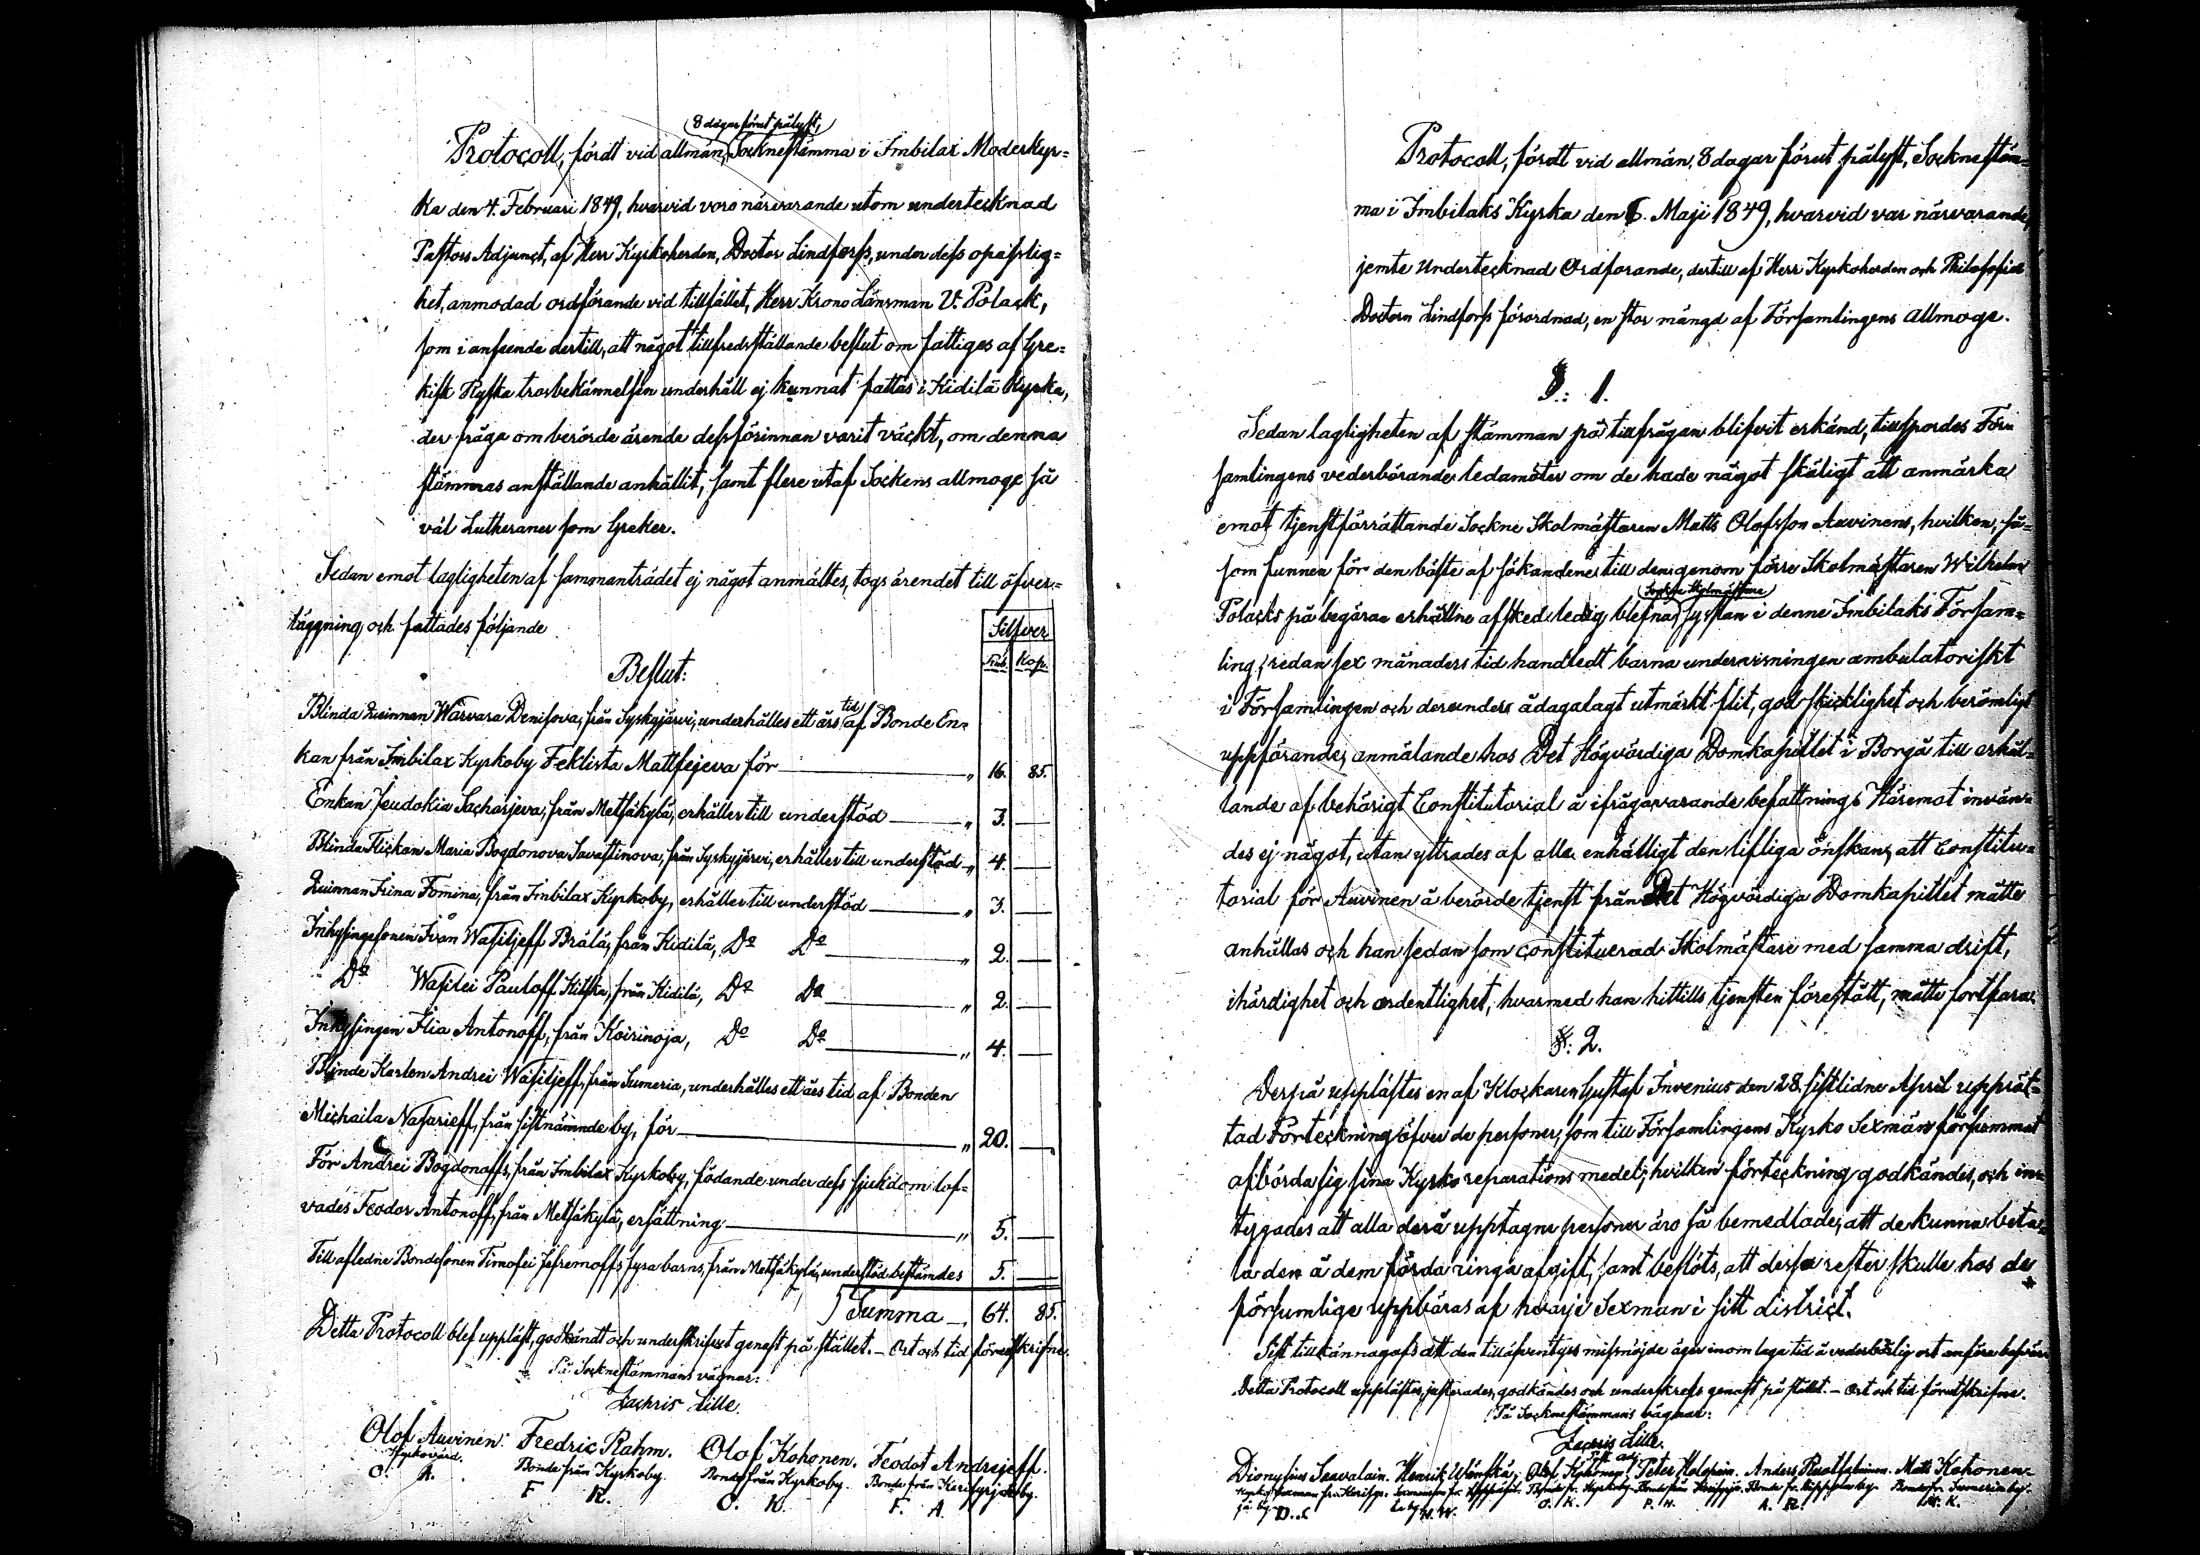 8 dagar förut pålyst,
Protocoll, fördt vid allmän, Socknestämma i Imbilax Moderkyr=
ka den 4. Februari 1849, hvarvid voro närvarande utom undertecknad
Pastors Adjunct, af Herr Kyrkoherden, Doctor Lindforss, under dess opasslig=
het, anmodad ordförande vid tillfället, Herr Krono Länsman V. Polack,
som i anseende dertill, att något tillfredsställande beslut om fattiges af Gre=
kisk Ryska trosbekännelsen underhåll ej kunnat fattas i Kidilä Kyrka,
der fråga om berörde ärende dessförinnan varit väckt, om denna
stämmas anställande anhållit, samt flere utaf Sockens allmoge så
väl Lutheraner som Greker.
Sedan emot lagligheten af sammanträdet ej något anmältes, togs ärendet till öfver=
läggning, och fattades följande
Silfver
Rub. Kop.
Beslut:
Blinda Qvinnan Warvara Denisova, från Syskyjärvi, underhålles ett års tid af Bonde En=
kan från Imbilax Kyrkoby Feklista Mattfejeva för " 16. 85.
Enkan Jeudokia Sacharjeva, från Metsäkylä, erhåller till understöd " 3. —
Blinda Flickan Maria Bogdonova Savastinova, från Syskyjärvi, erhåller till understöd " 4. —
Qvinnan Irina Fomina, från Imbilax Kyrkoby, erhåller till understöd " 3. —
Inhysingesonen Ivan Wasiljeff Brälä, från Kidilä, Do Do " 2. —
Do Wasilei Pauloff Kitska, från Kidilä, Do Do " 2. —
Inhysingen Ilia Antonoff, från Koirinoja, Do Do " 4. —
Blinde Karlen Andrei Wasiljeff, från Sumeria, underhålles ett års tid af Bonden
Michaila Nasarieff, från sistnämnde by, för " 20. —
För Andrei Bogdonoffs, från Imbilax Kyrkoby, födande under dess sjukdom lof=
vades Feodor Antonoff, från Metsäkylä, ersättning " 5. —
Till aflidne Bondesonen Timofei Jefremoffs fyra barns, från Metsäkylä, understöd bestämdes 5. —
Summa 64. 85.
Detta Protocoll blef uppläst, godkändt och underskrifvet genast på stället. — Ort och tid förutskrifne.
På Socknestämmans vägnar:
Zachris Lille.
Olof Auvinen. Fredric Rahm. Olof Kohonen. Feodot Andrejeff.
Kyrkovärd. Bonde från Kyrkoby. Bonde från Kyrkoby. Bonde från Karisyrjä by.
O. A. F. R. O. K. F. A.
Protocoll, fördt vid allmän, 8 dagar förut pålyst, Socknestäm=
ma i Imbilaks Kyrka den 6. Maji 1849, hvarvid var närvarande,
jemte Undertecknad Ordförande, dertill af Herr Kyrkoherden och Philosofie
Doctorn Lindforss förordnad, en stor mängd af Församlingens Allmoge.
§.: 1.
Sedan lagligheten af stämman på tillfrågan blifvit erkänd, tillspordes För=
samlingens vederbörande ledamöter om de hade något skäligt att anmärka
emot tjenstförrättande Sockne Skolmästaren Matts Olofsson Auvinens, hvilken, så=
som funnen för den bäste af sökandene till den genom förre Skolmästaren Wilhelm
Polacks på begäran erhållne afsked ledig blefna Sockne Skolmästare sysslan i denne Imbilaks Försam=
ling, redan sex månaders tid handledt barna undervisningen ambulatoriskt
i Församlingen och derunder ådagalagt utmärkt flit, god skicklighet och berömligt
uppförande, anmälande hos Det Högvördiga Domkapitlet i Borgå till erhål=
lande af behörigt Constitutorial å ifrågavarande befattning. Häremot invän=
des ej något, utan yttrades af alla enhälligt den lifliga önskan, att Constitu=
torial för Auvinen å berörde tjenst från Det Högvördiga Domkapitlet måtte
anhållas och han sedan som constituerad Skolmästare med samma drift,
ihärdighet och ordentlighet, hvarmed han hittills tjensten förestått, måtte fortfara.
§. 2.
Derpå upplästes en af Klockaren Gustaf Invenius den 28. sistlidne April upprät=
tad Förteckning öfver de personer, som till Församlingens Kyrko Sexmän försummat
afbörda sig sina Kyrko reparations medel, hvilken förteckning godkändes, och in=
tygades att alla derå upptagne personer äro så bemedlade, att de kunna beta=
la den å dem förda ringa afgift, samt beslöts, att dessa rester skulle hos de
försumlige uppbäras af hvarje Sexman i sitt district.
Sist tillkännagafs att den till äfventyrs missnöjde äger inom laga tid å vederbörlig ort anföra besvär.
Detta Protocoll upplästes, justerades, godkändes och underskrefs genast på stället. — Ort och tid förutskrifne.
På Socknestämmans vägnar:
Zachris Lille.
Past. adj.
Dionysius Saavalain. Henrik Wänskä, Olof Kohonen, Peter Holopain. Anders Ruotsalainen. Matts Kohonen.
D. S. H. W. O. K. P. H. A. R. M. K.